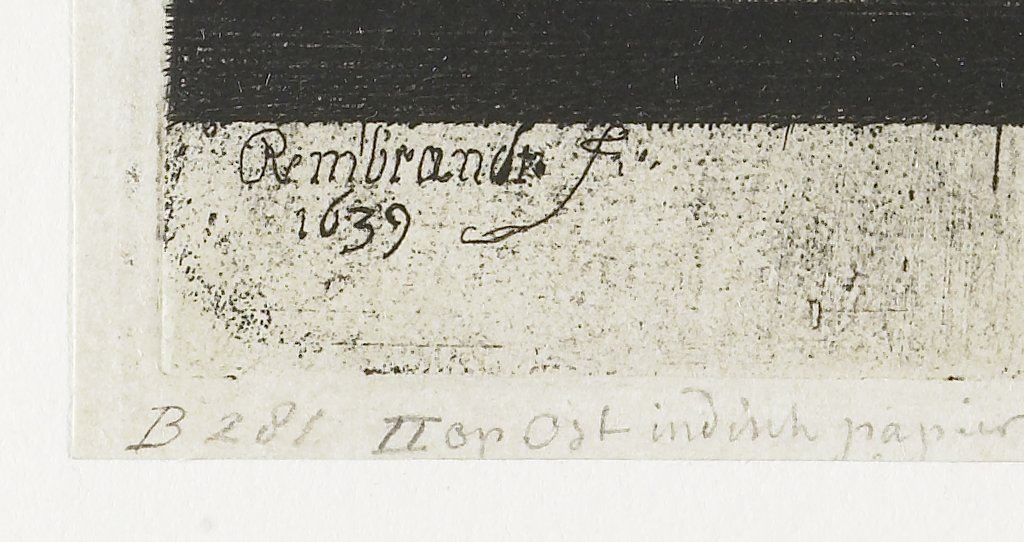 Rembrandt f..
1639
B 281 II op Ost indisch papier